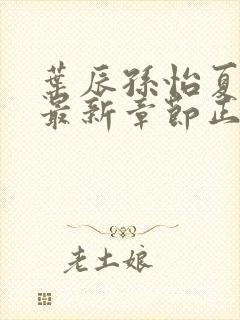 葉辰孫怡夏
最新章節正
老土娘